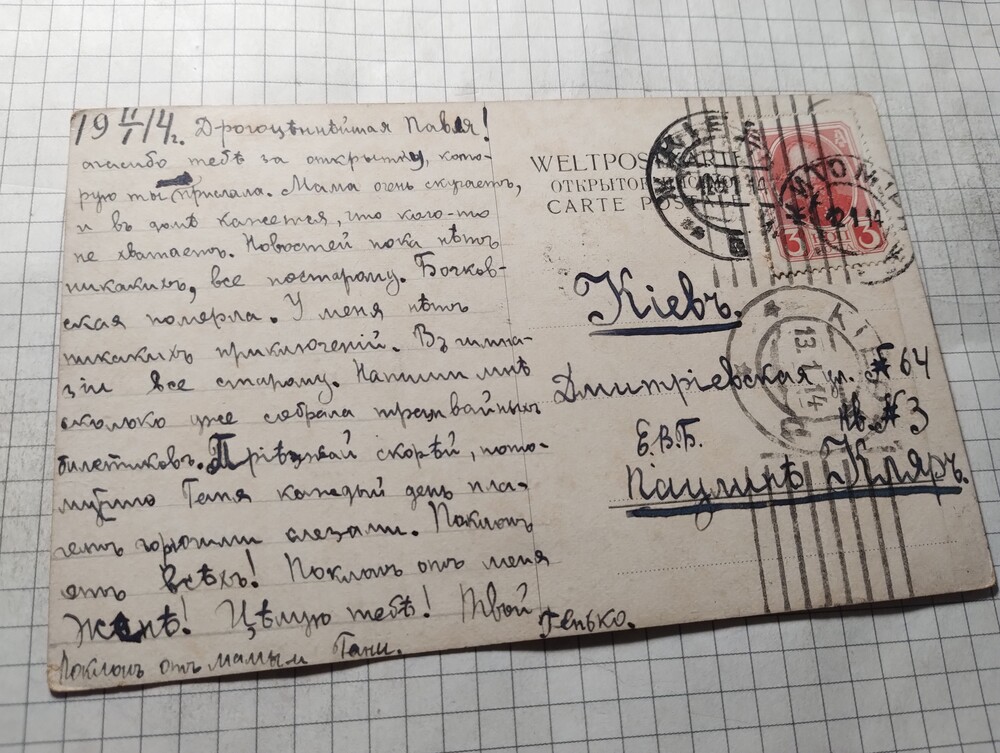 19 II/I 14 г. Дрогоцѣннѣйшая Павля!
спасибо тебѣ за открытку, кото-
рую ты прислала. Мама очень скучаетъ,
и въ домѣ кажется, что кого-то
не хватаетъ. Новостей пока нѣтъ
никакихъ, все постарому. Бочков-
ская померла. У меня нѣтъ
никакихъ приключеній. Въ гимна-
зіи все старому. Напиши мнѣ
сколько уже собрала трамвайныхъ
билетиковъ. Пріѣзжай скорѣй, пото-
мучто Геня каждый день пла-
четъ горючими слезами. Поклонъ
отъ всѣхъ! Поклонъ отъ меня
Женѣ! Цѣлую тебѣ! Твой Генько.
Поклонъ отъ мамы и Гани.
WELTPOSTKARTE
ОТКРЫТОЕ
CARTE POSTALE
12 1 14
3 КОП 3
Кіевъ.
Дмитріевская ул. № 64
кв. № 3
Е.В.Б.
Паулинѣ Кляръ.
13.1.14